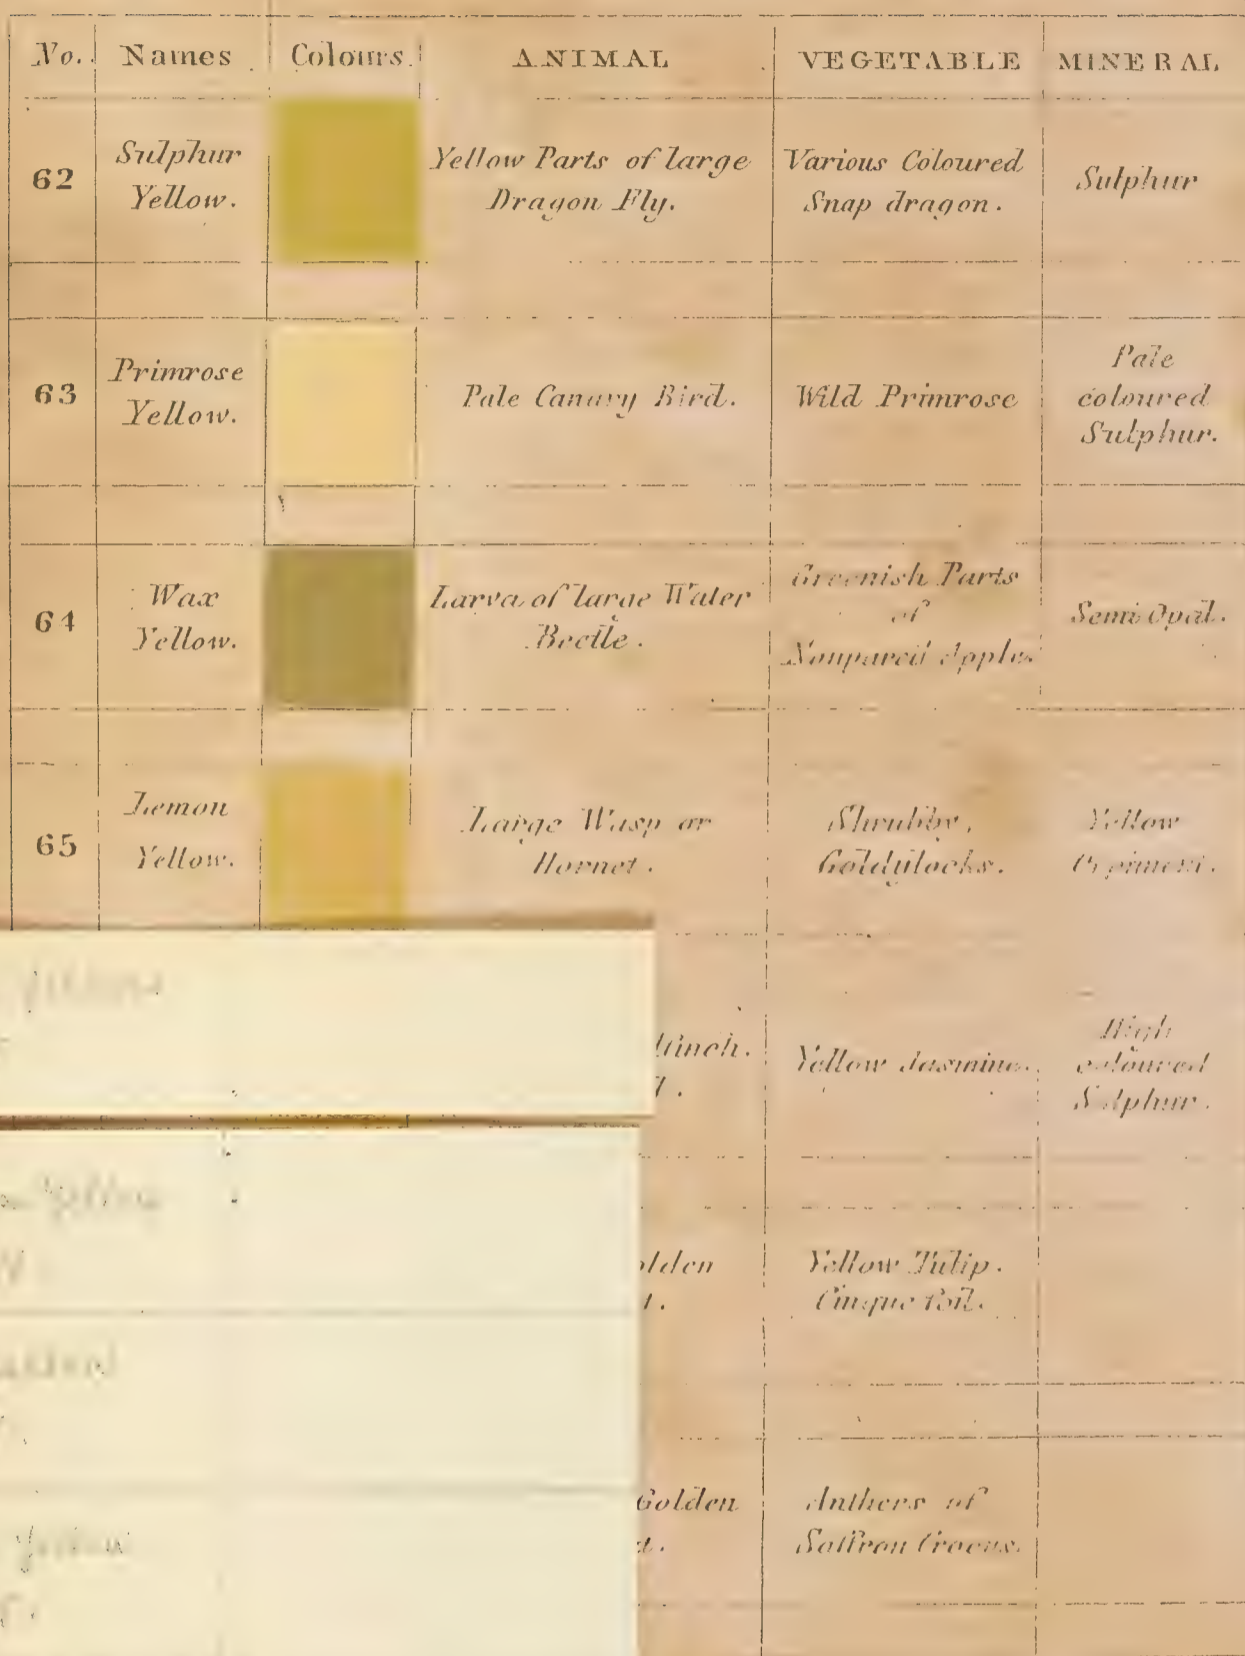 No. Names Colours ANIMAL VEGETABLE MINERAL
62
Sulphur
Yellow.
Yellow Parts of large
Dragon Fly.
Various Coloured
Snap dragon.
Sulphur
63
Primrose
Yellow.
Pale Canary Bird.
Wild Primrose
Pale
coloured
Sulphur.
64
Wax
Yellow.
Larva of large Water
Beetle.
Greenish Parts
of
Nonpareil Apple.
Semi Opal.
65
Lemon
Yellow.
Large Wasp or
Hornet.
Shrubby,
Goldylocks.
Yellow
Orpiment.
finch.
Yellow Jasmine.
High
coloured
Sulphur.
olden
t.
Yellow Tulip.
Cinque foil.
Golden
Anthers of
Saffron Crocus.